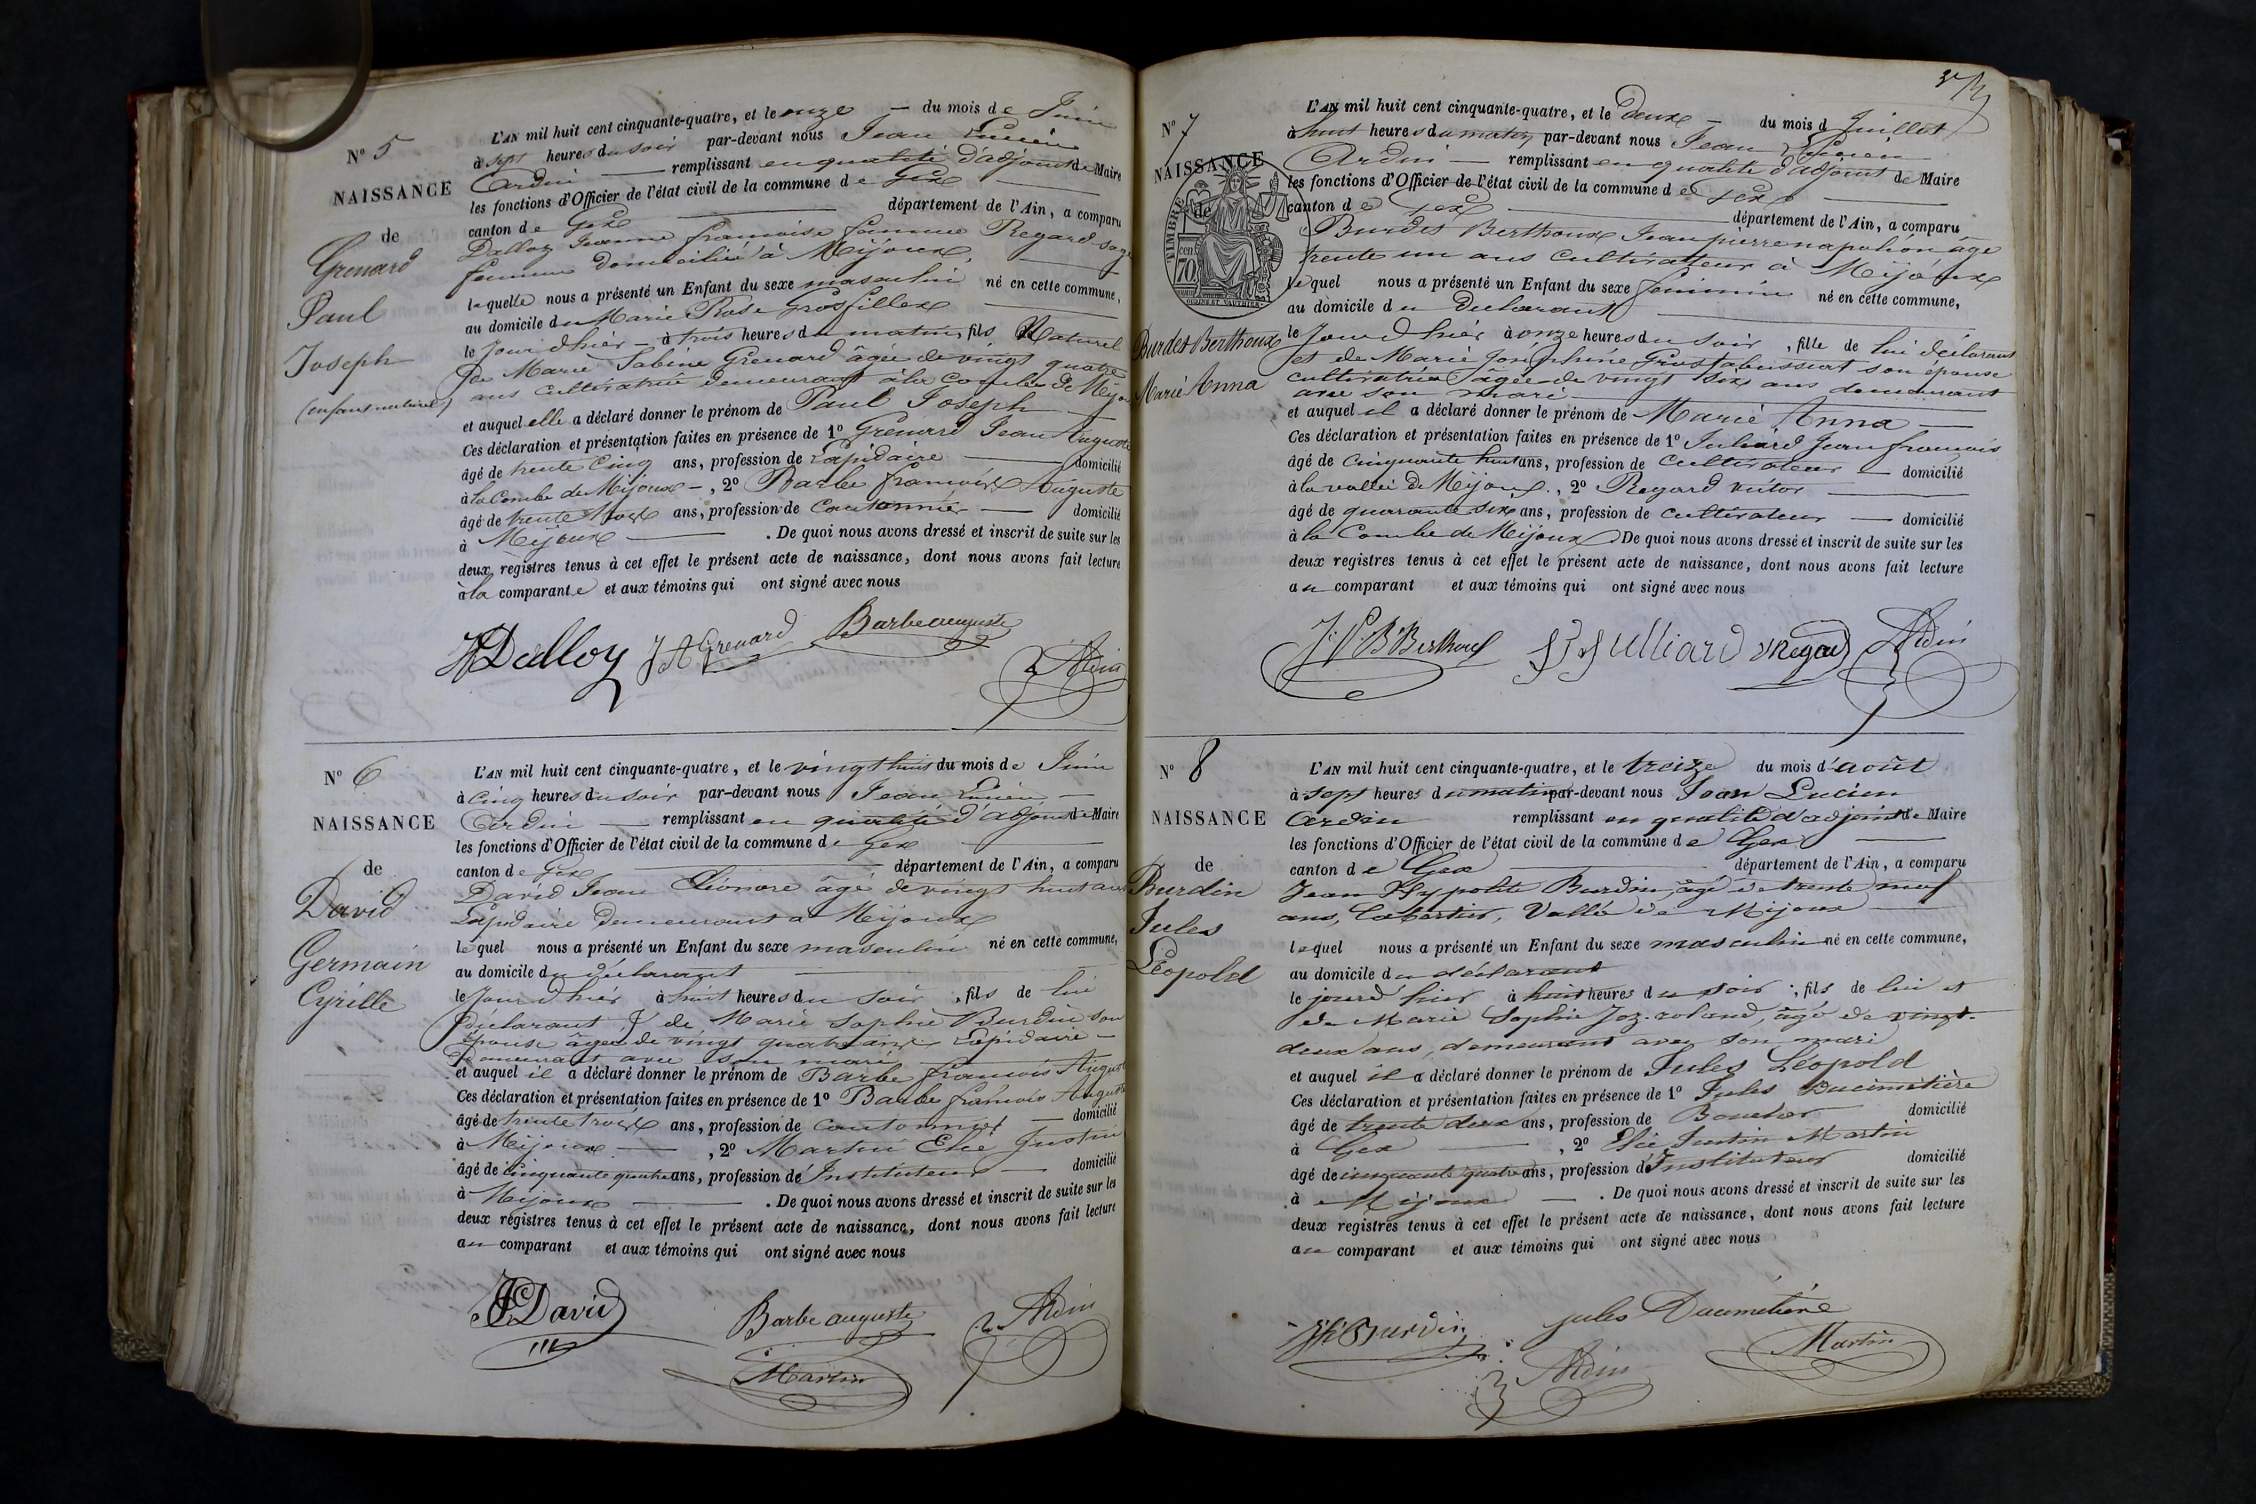 N° 5
NAISSANCE
de
Grenard
Paul
Joseph
(enfant naturel)
L'AN mil huit cent cinquante-quatre, et le onze — du mois de Juin
à sept heures du soir par-devant nous Jean Lucien
Ardin — remplissant en qualité d'adjoint de Maire
les fonctions d'Officier de l'état civil de la commune de Gex
canton de Gex — département de l'Ain, a comparu
Dalloz Jeanne françoise femme Regard sage
femme domiciliée à Mijoux,
laquelle nous a présenté un Enfant du sexe masculin né en cette commune,
au domicile de Marie Rose Grosfillex
le jour d'hier — à trois heures du matin, fils Naturel
de Marie Sabine Grenard âgée de vingt quatre
ans cultivatrice demeurant à la combe de Mijoux
et auquel elle a déclaré donner le prénom de Paul Joseph —
Ces déclaration et présentation faites en présence de 1° Grenard Jean Auguste
âgé de trente cinq ans, profession de Lapidaire — domicilié
à la Combe de Mijoux —, 2° Barbe françois Auguste
âgé de trente trois ans, profession de Cantonnier — domicilié
à Mijoux — . De quoi nous avons dressé et inscrit de suite sur les
deux registres tenus à cet effet le présent acte de naissance, dont nous avons fait lecture
à la comparante et aux témoins qui ont signé avec nous
Dalloz J A Grenard Barbe auguste
Ardin
N° 6
NAISSANCE
de
David
Germain
Cyrille
L'AN mil huit cent cinquante-quatre, et le vingt huit du mois de Juin
à cinq heures du soir par-devant nous Jean Lucien —
Ardin — remplissant en qualité d'adjoint de Maire
les fonctions d'Officier de l'état civil de la commune de Gex
canton de Gex — département de l'Ain, a comparu
David Jean âgé de vingt huit ans
Lapidaire demeurant à Mijoux
lequel nous a présenté un Enfant du sexe masculin né en cette commune,
au domicile du déclarant —
le jour d'hier à huit heures du soir, fils de lui
déclarant & de Marie Sophie Burdin son
épouse âgée de vingt quatre ans Lapidaire —
demeurant avec son mari
et auquel il a déclaré donner le prénom de Barbe françois Auguste
Ces déclaration et présentation faites en présence de 1° Barbe françois Auguste
âgé de trente trois ans, profession de cantonnier — domicilié
à Mijoux. —, 2° Martin Elie Justin
âgé de cinquante quatre ans, profession d'Instituteur — domicilié
à Mijoux — . De quoi nous avons dressé et inscrit de suite sur les
deux registres tenus à cet effet le présent acte de naissance, dont nous avons fait lecture
au comparant et aux témoins qui ont signé avec nous
David Barbe auguste Ardin
Martin
N° 7
NAISSANCE
de
TIMBRE
cen
70
Burdet Berthoux
Marie Anna
L'AN mil huit cent cinquante-quatre, et le deux — du mois d Juillet
à huit heures du matin par-devant nous Jean Lucien
Ardin — remplissant en qualité d'adjoint de Maire
les fonctions d'Officier de l'état civil de la commune de Gex
canton de Gex — département de l'Ain, a comparu
Burdet Berthoux Jean pierre napoléon âgé
trente un ans cultivateur à Mijoux
lequel nous a présenté un Enfant du sexe féminin né en cette commune,
au domicile du déclarant
le jour d'hier à onze heures du soir, fille de lui déclarant
et de Marie Joséphine Grostabussiat son épouse
cultivatrice âgée de vingt six ans demeurant
avec son mari
et auquel il a déclaré donner le prénom de Marie Anna —
Ces déclaration et présentation faites en présence de 1° Juliard Jean françois
âgé de cinquante huit ans, profession de cultivateur — domicilié
à la vallée de Mijoux., 2° Regard victor —
âgé de quarante six ans, profession de cultivateur — domicilié
à la Combe de Mijoux De quoi nous avons dressé et inscrit de suite sur les
deux registres tenus à cet effet le présent acte de naissance, dont nous avons fait lecture
au comparant et aux témoins qui ont signé avec nous
J. P. B Berthoux Julliard V Regard Ardin
N° 8
NAISSANCE
de
Burdin
Jules
Léopold
L'AN mil huit cent cinquante-quatre, et le treize du mois d'août
à sept heures du matin par-devant nous Jean Lucien
Ardin remplissant en qualité d'adjoint de Maire
les fonctions d'Officier de l'état civil de la commune de Gex
canton de Gex — département de l'Ain, a comparu
Jean Hypolite Burdin, âgé de trente neuf
ans, Cabartier, Vallée de Mijoux —
lequel nous a présenté un Enfant du sexe masculin né en cette commune,
au domicile du déclarant
le jourd'hier à huit heures du soir, fils de lui et
de Marie Sophie Joz-roland, âgé de vingt-
deux ans, demeurant avec son mari
et auquel il a déclaré donner le prénom de Jules Léopold
Ces déclaration et présentation faites en présence de 1° Jules Ducimetière
âgé de trente deux ans, profession de Boucher domicilié
à Gex —, 2° Elie Justin Martin
âgé de cinquante quatre ans, profession d'Instituteur domicilié
à Mijoux — . De quoi nous avons dressé et inscrit de suite sur les
deux registres tenus à cet effet le présent acte de naissance, dont nous avons fait lecture
au comparant et aux témoins qui ont signé avec nous
Jh Burdin Jules Ducimetière
Martin
Ardin